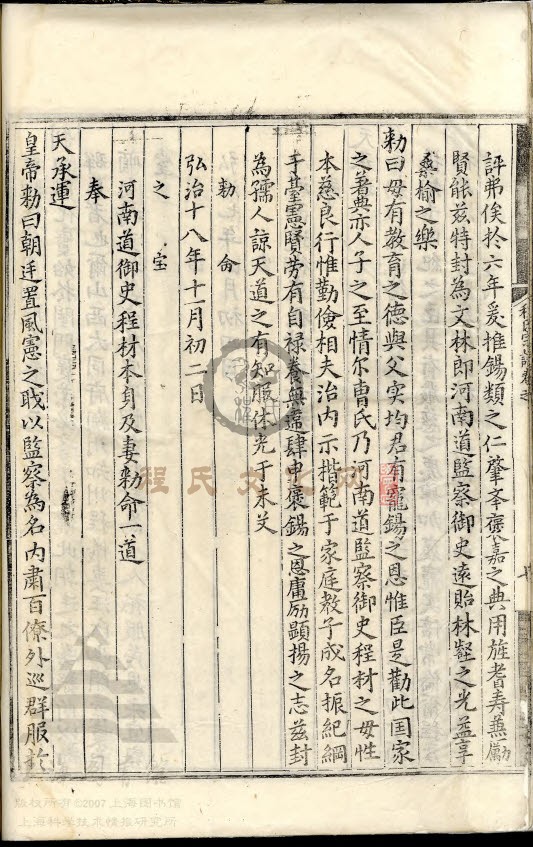 評弗俟於六年爰推錫類之仁肇舉褒嘉之典用旌耆壽兼勵
賢能茲特封為文林郎河南道監察御史遠貽林壑之光益享
桑榆之樂
勑曰母有教育之德與父实均君有寵錫之恩惟臣是勸此国家
之著典亦人子之至情尔曹氏乃河南道監察御史程材之母性
本慈良行惟勤儉相夫治内示楷範于家庭教子成名振紀綱
于臺憲賢劳有自禄養無違肆申褒錫之恩庸励顯揚之志茲封
為孺人諒天道之有知服休光于未艾
勑命
弘治十八年十一月初二日
之宝
河南道御史程材本身及妻勑命一道
奉
天承運
皇帝勑曰朝廷置風憲之职以監察為名内肅百僚外巡群服於
程氏文化网
版权所有©2007上海图书馆
上海科学技术情报研究所